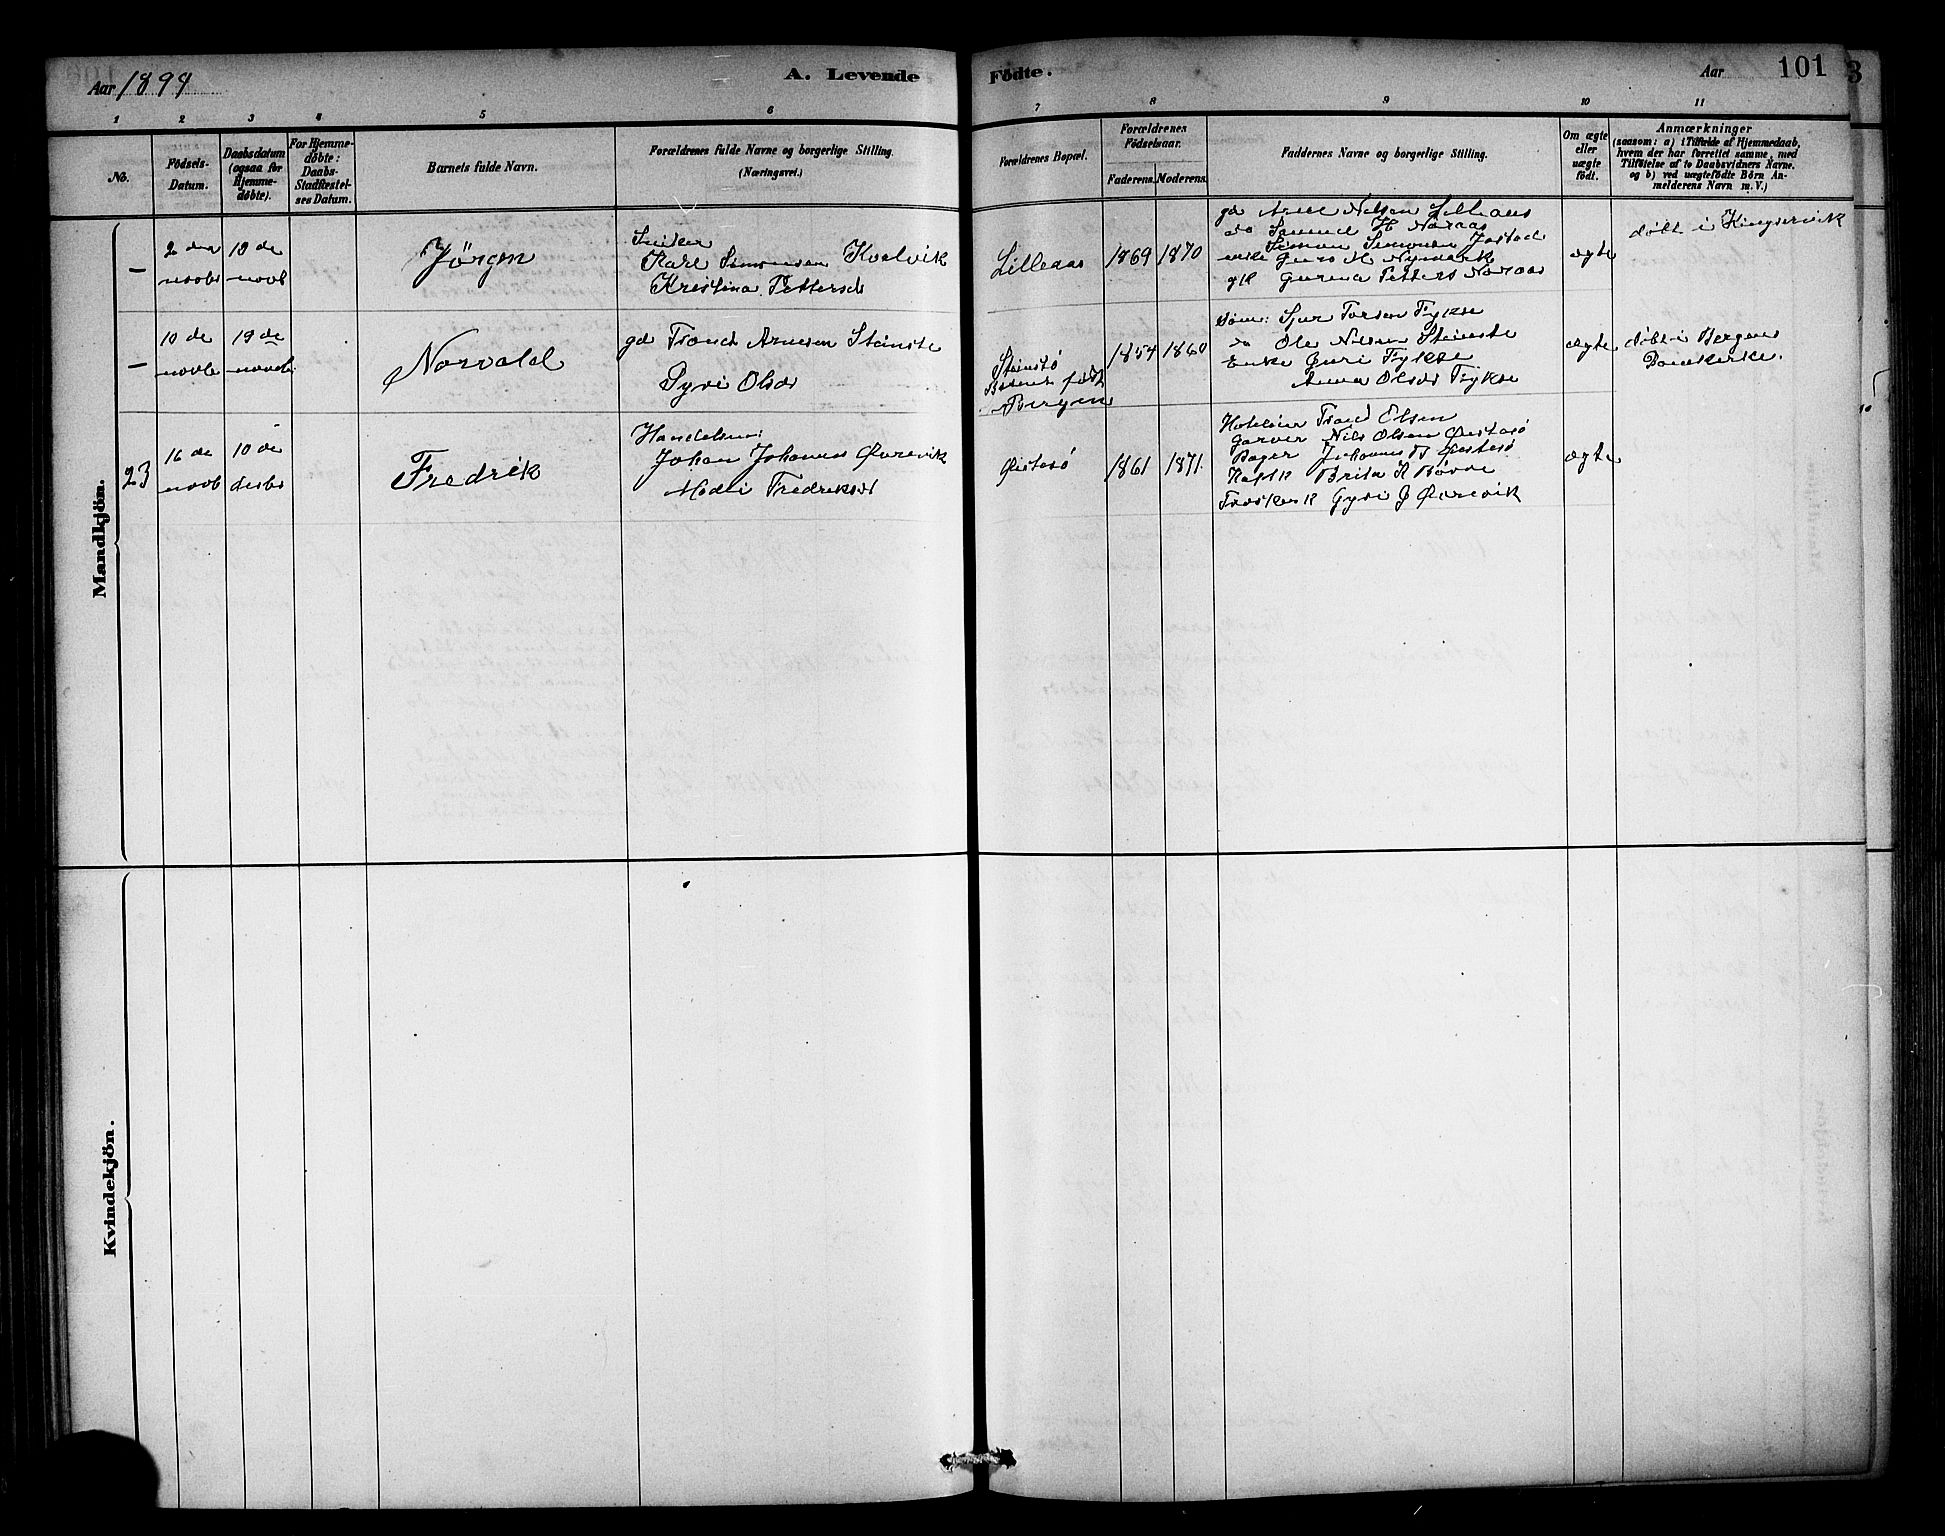 Aar 1894
A. Levende
Födte.
Aar
101
3
1 2 3 4 5 6 7 8 9 10 11
No.
Födsels-
Datum.
Daabsdatum
(ogsaa for
Hjemme-
döbte).
For Hjemme-
döbte:
Daabs-
Stadfæstel-
ses Datum.
Barnets fulde Navn.
Forældrenes fulde Navne og borgerlige Stilling.
(Næringsvei.)
Forældrenes Bopæl.
Forældrenes
Födselsaar.
Faderens. Moderens.
Faddernes Navne og borgerlige Stilling.
Om ægte
eller
uægte
födt.
Anmærkninger
(saasom: a) i Tilfælde af Hjemmedaab,
hvem der har forrettet samme, med
Tilföielse af to Daabsvidners Navne.
og b) ved uægtefödte Börn An-
melderens Navn m. V.)
Mandkjön.
–
2 den
novbr
18 de
novb
Jörgen
Karl Simonsen Kvalvik
Kristina Pettersd
Lilleaas
1869
1870
gd Arne Nilsen Lilleaas
do Samund H Noraas
Simon Simonsen Jostad
enke Guro M. Nymark
gk Gurina Petters Noraas
ægte
döbt i Kingservik
–
10 de
novb
19 de
novb
Norvald
gd Trond Arnesen Steinstø
Gyri Olsdr
Steinstø
Barnet född
Bergen
1854
1860
Sjur Torsen Fykse
do Ole Nilsen Steinstø
Enke Guri Fykse
Anna Olsdr Fykse
ægte
döbt i Bergens
23
16 de
novb
10 de
desbr
Fredrik
Handelsm:
Johan Johannes Øurevik
Fredriksdt
Øistesø
1861
1871.
Trond Olsen
Garver Nils Olsen Øistesø
Bager Johannes T Øistesø
Brita K Børve
Gyri J Øurevik
ægte
Kvindekjön.